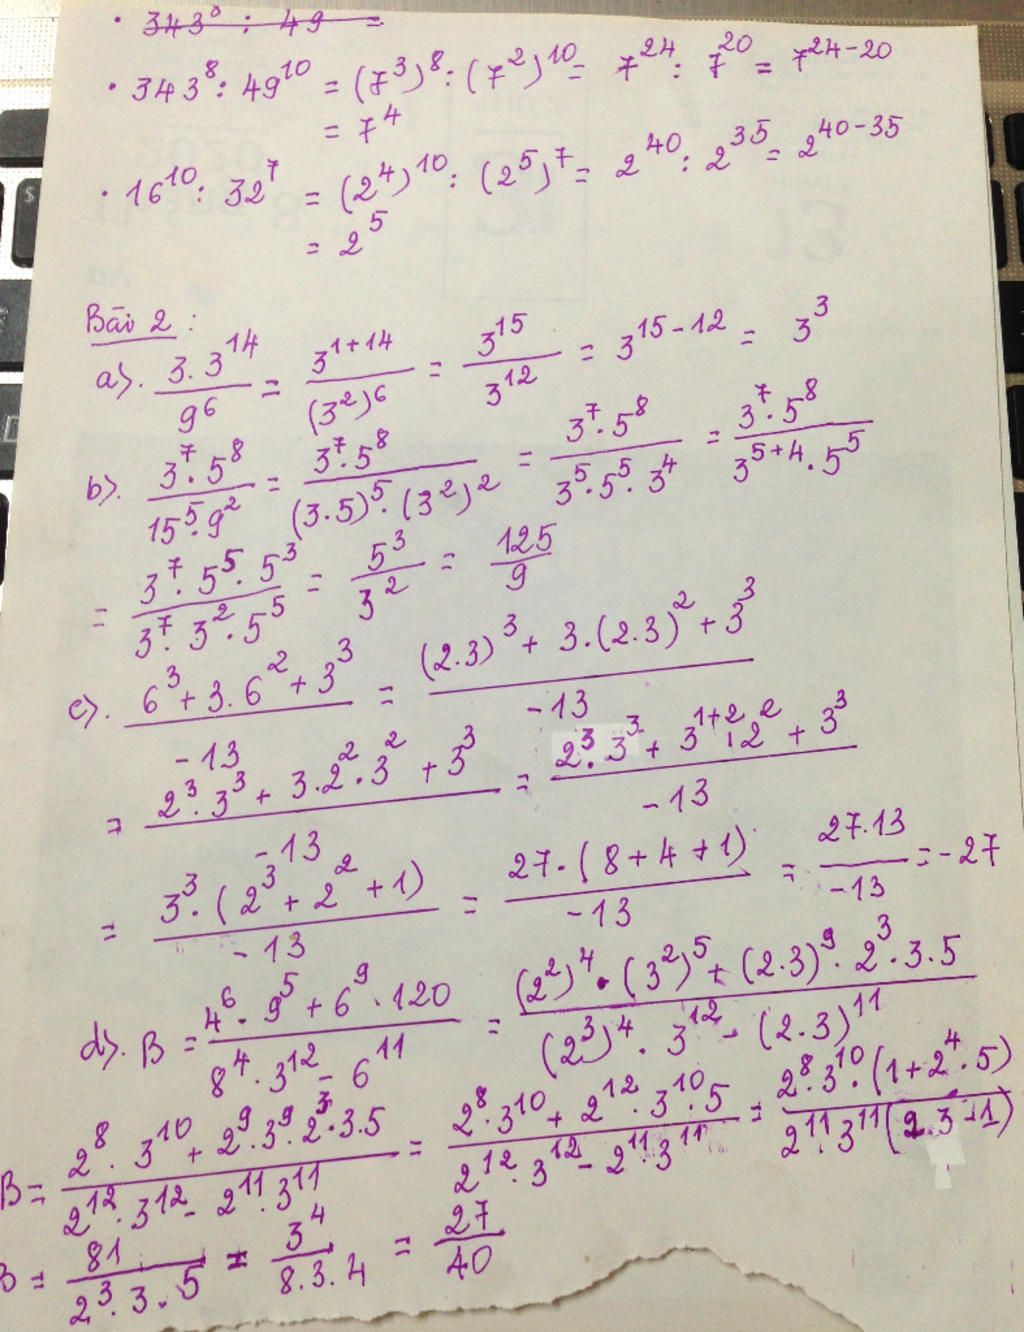 · 343⁸ : 49 =
· 343⁸ : 49¹⁰ = (7³)⁸ : (7²)¹⁰ = 7²⁴ : 7²⁰ = 7²⁴⁻²⁰
= 7⁴
· 16¹⁰ : 32⁷ = (2⁴)¹⁰ : (2⁵)⁷ = 2⁴⁰ : 2³⁵ = 2⁴⁰⁻³⁵
= 2⁵
Bài 2 :
a). 3.3¹⁴/9⁶ = 3¹⁺¹⁴/(3²)⁶ = 3¹⁵/3¹² = 3¹⁵⁻¹² = 3³
b). 3⁷.5⁸/15⁵.9² = 3⁷.5⁸/(3.5)⁵.(3²)² = 3⁷.5⁸/3⁵.5⁵.3⁴ = 3⁷.5⁸/3⁵⁺⁴.5⁵
= 3⁷.5⁵.5³/3⁷.3².5⁵ = 5³/3² = 125/9
c). 6³ + 3.6² + 3³/-13 = (2.3)³ + 3.(2.3)² + 3³/-13
= 2³.3³ + 3.2².3² + 3³/-13 = 2³.3³ + 3¹⁺².2² + 3³/-13
= 3³.(2³ + 2² + 1)/-13 = 27.(8 + 4 + 1)/-13 = 27.13/-13 = -27
d). B = 4⁶.9⁵ + 6⁹.120/8⁴.3¹² - 6¹¹ = (2²)⁴.(3²)⁵ + (2.3)⁹.2³.3.5/(2³)⁴.3¹² - (2.3)¹¹
B = 2⁸.3¹⁰ + 2⁹.3⁹.2³.3.5/2¹².3¹² - 2¹¹.3¹¹ = 2⁸.3¹⁰ + 2¹².3¹⁰.5/2¹².3¹² - 2¹¹.3¹¹ = 2⁸.3¹⁰.(1 + 2⁴.5)/2¹¹.3¹¹(2.3 - 1)
B = 81/2³.3.5 = 3⁴/8.3.4 = 27/40